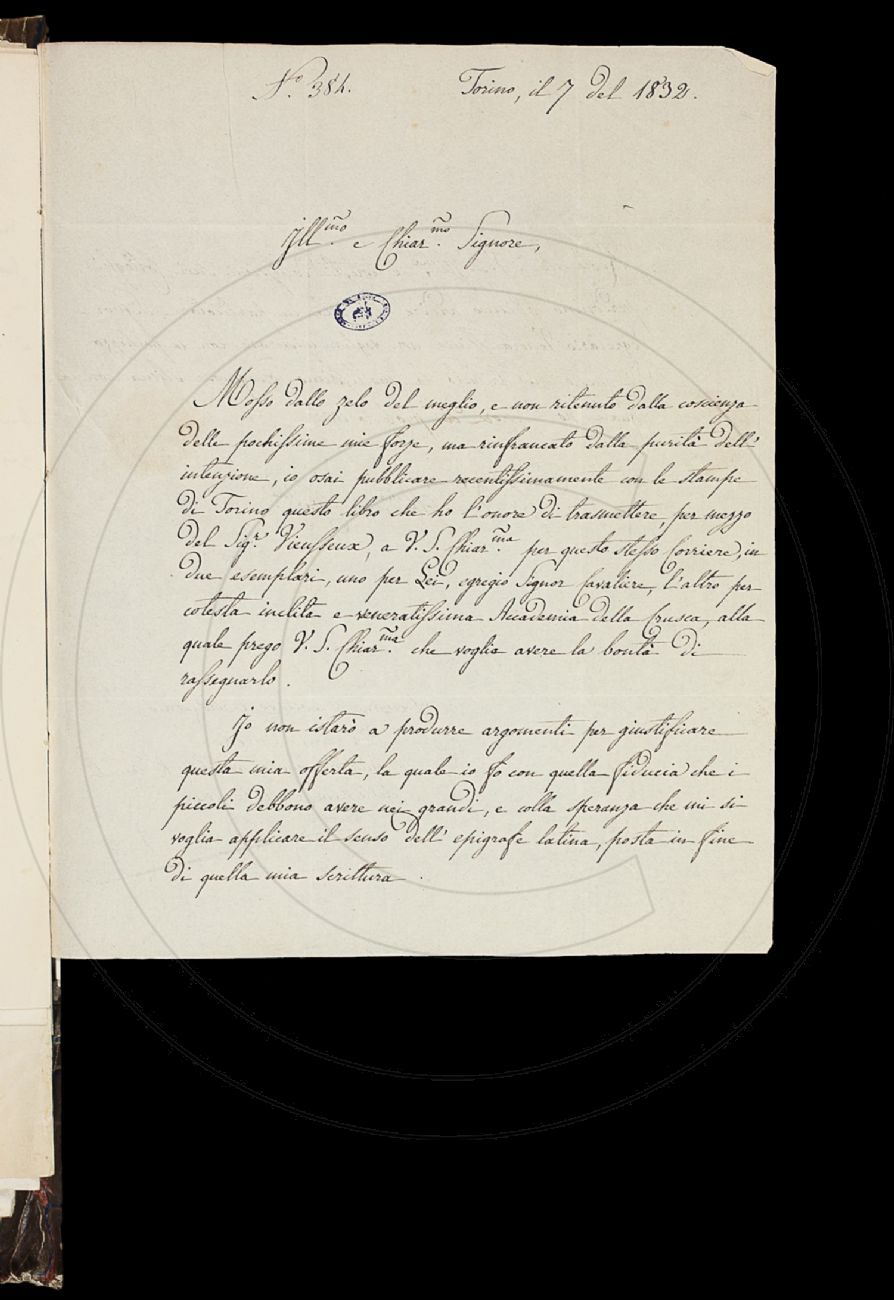 N.º 384. Torino, il 7 del 1832.
Ill.mo e Chiar.mo Signore,
Mosso dallo zelo del meglio, e non ritenuto dalla coscienza
delle pochissime mie forze, ma rinfrancato dalla purità dell'
intenzione, io osai pubblicare recentissimamente con le stampe
di Torino questo libro che ho l'onore di trasmettere, per mezzo
del Sig.r Vieusseux, a V. S. Chiar.ma per questo stesso Corriere, in
due esemplari, uno per Lei, egregio Signor Cavaliere, l'altro per
cotesta inclita e veneratissima Accademia della Crusca, alla
quale prego V. S. Chiar.ma che voglia avere la bontà di
rassegnarlo.
Io non istarò a produrre argomenti per giustificare
questa mia offerta, la quale io fo con quella fiducia che i
piccoli debbono avere nei grandi, e colla speranza che mi si
voglia applicare il senso dell' epigrafe latina, posta in fine
di quella mia scrittura.